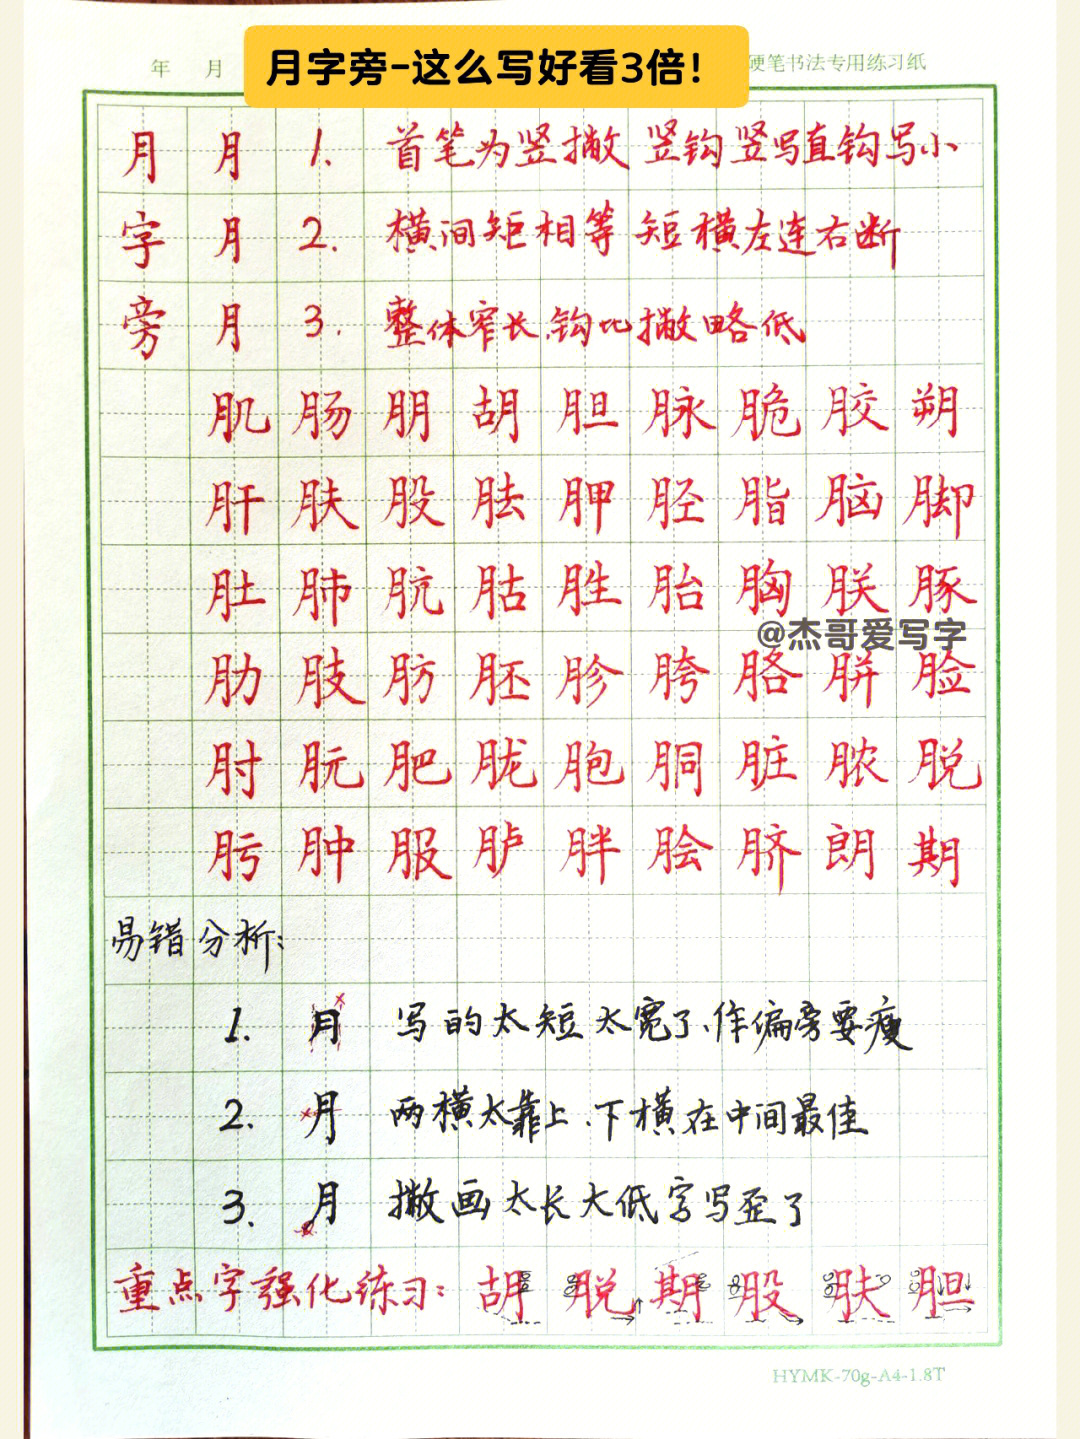 月字旁-这么写好看3倍!
年 月 硬笔书法专用练习纸
月 月 1. 首笔为竖撇 竖钩竖写直钩写小
字 月 2. 横间矩相等 短横左连右断
旁 月 3. 整体窄长、钩比撇略低
肌 肠 朋 胡 胆 脉 脆 胶 朔
肝 肤 股 胠 胛 胫 脂 脑 脚
肚 肺 肮 胋 胜 胎 胸 朕 豚
@杰哥爱写字
肋 肢 肪 胚 胗 胯 胳 胼 脸
肘 朊 肥 胧 胞 胴 脏 脓 脱
肟 肿 服 胪 胖 脍 脐 朗 期
易错分析:
1. 月 写的太短太宽了、作偏旁要瘦
2. 月 两横太靠上、下横在中间最佳
3. 月 撇画太长太低字写歪了
重点字强化练习: 胡 脱 期 股 肤 胆
HYMK-70g-A4-1.8T